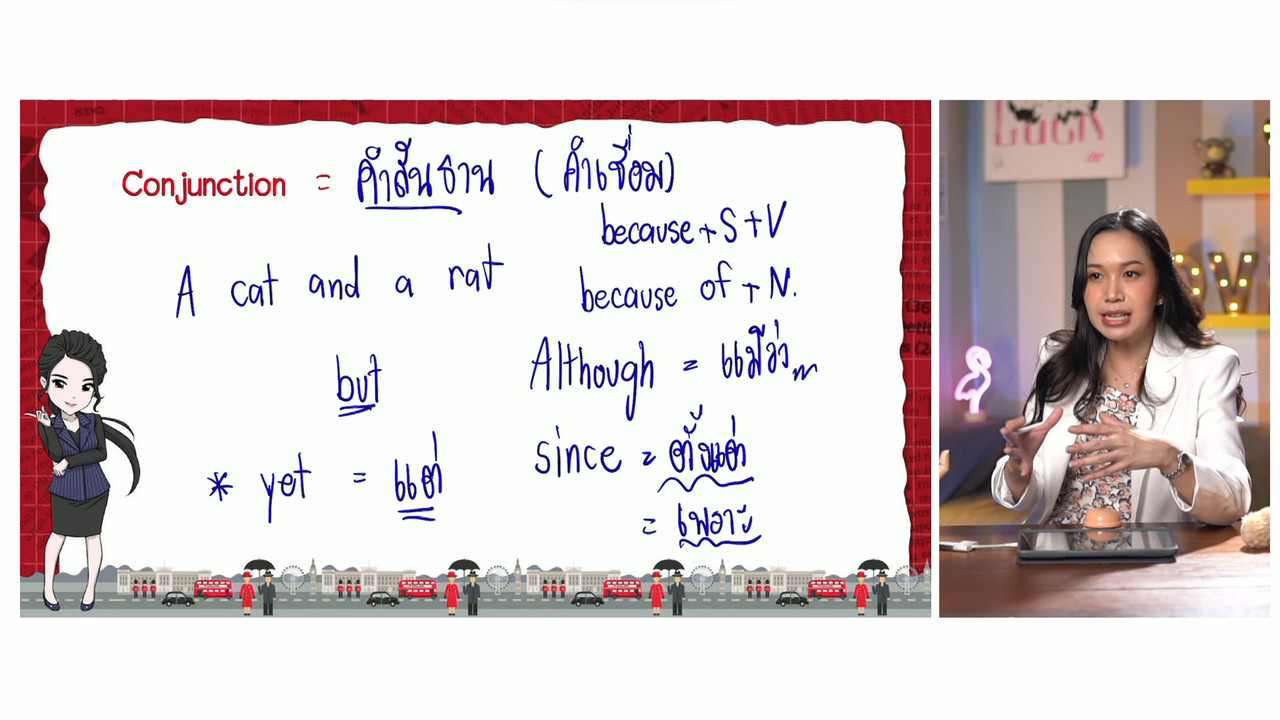 Conjunction = คำสันธาน (คำเชื่อม)
A cat and a rat
but
* yet = แต่
because + S + V
because of + N.
Although = แม้ว่า
since = ตั้งแต่
= เพราะ
LUCK
OV